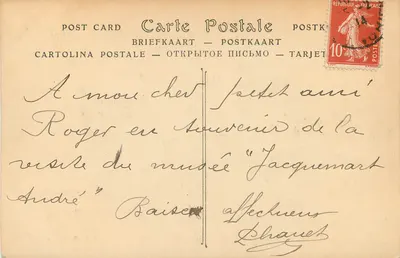 POST CARD Carte Postale POSTK
BRIEFKAART — POSTKAART
CARTOLINA POSTALE — ОТКРЫТОЕ ПИСЬМО — TARJET
10
14
A mon cher petit ami
Roger en souvenir de la
visite du musée "Jacquemart
André" Baiser affectueux